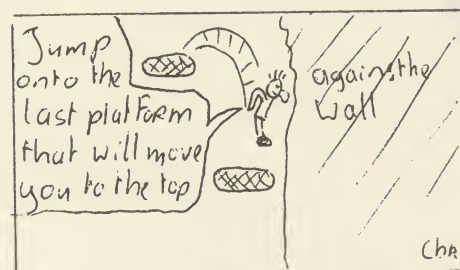 Jump
onto the
last platform
that will move
you to the top
against the
wall